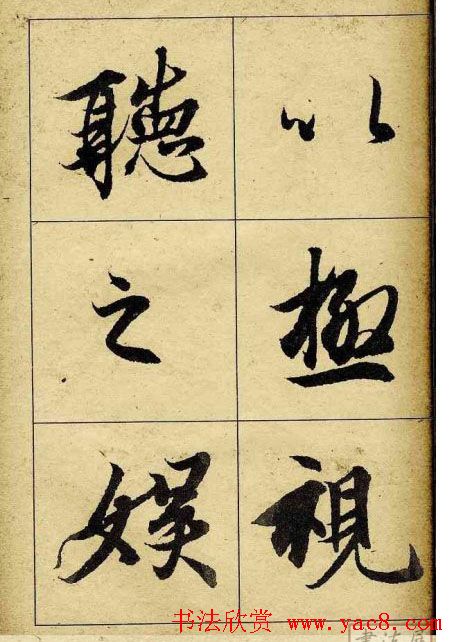 以極視
聽之娛
书法欣赏 www.yac8.com